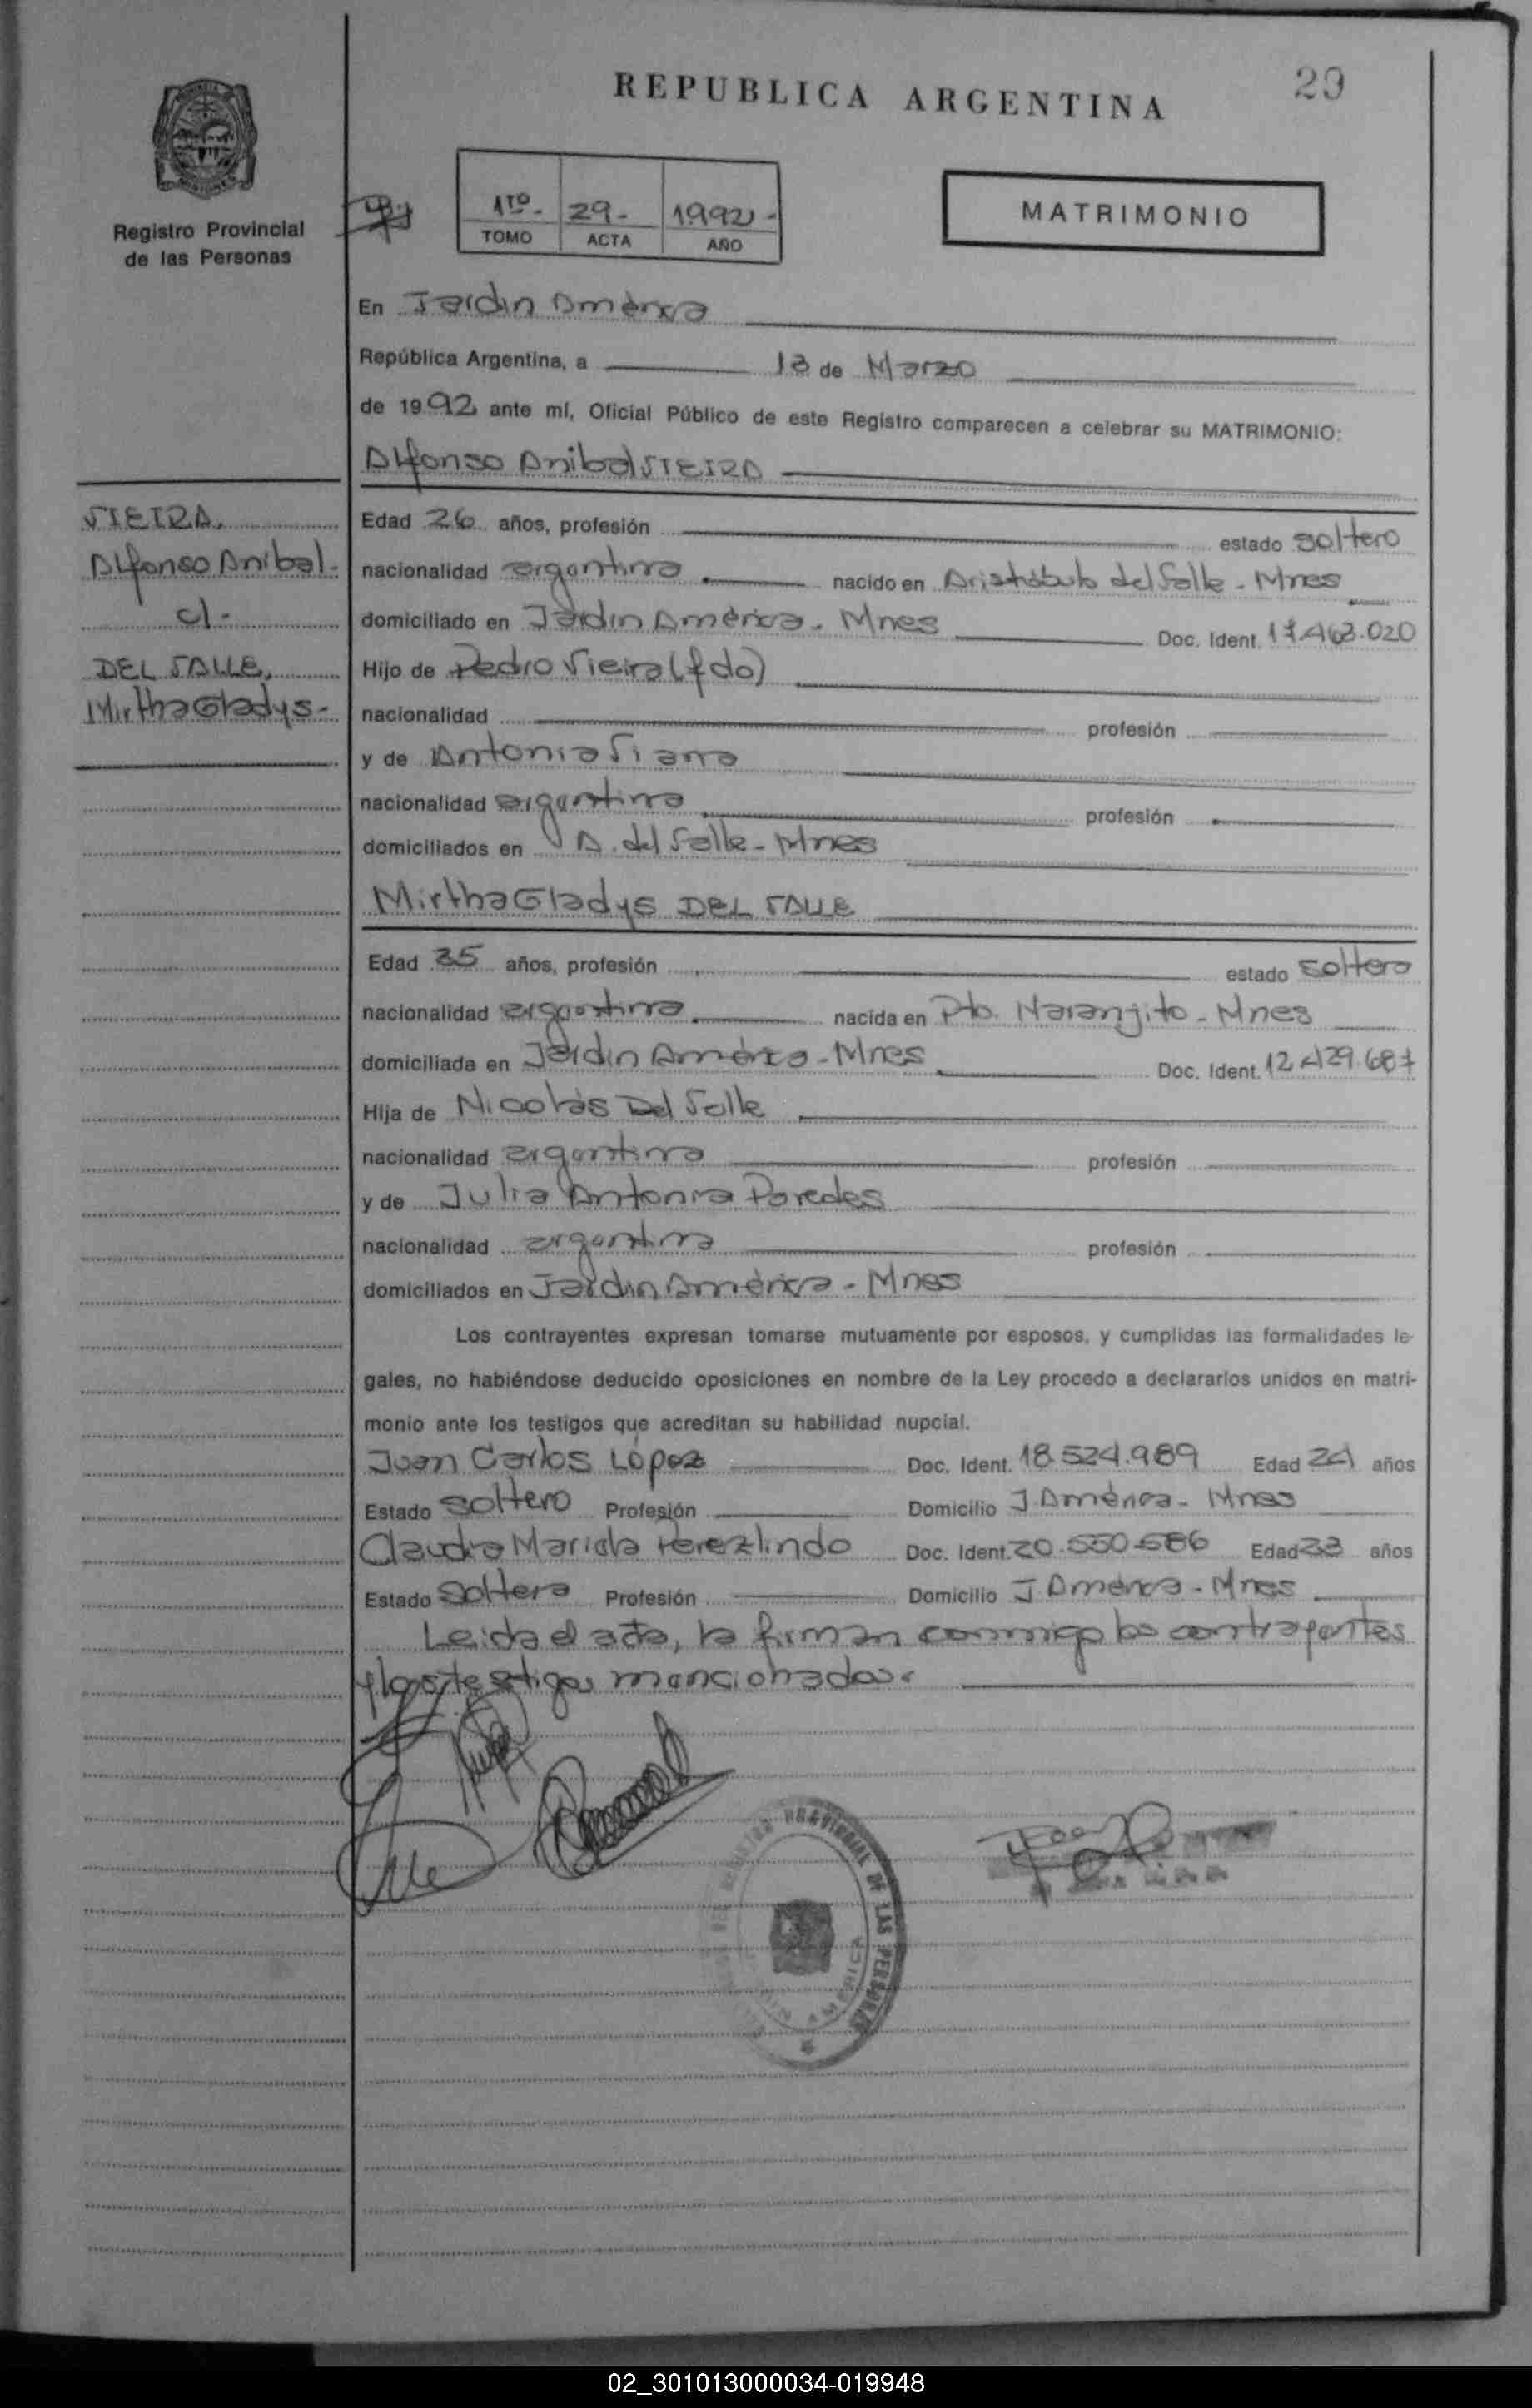 REPUBLICA ARGENTINA
29
Registro Provincial
de las Personas
1to. 29- 1992-
TOMO ACTA AÑO
MATRIMONIO
En Jardin América
República Argentina, a 13 de Marzo
de 1992 ante mí, Oficial Público de este Registro comparecen a celebrar su MATRIMONIO:
Alfonso Anibal VIEIRA
VIEIRA,
Alfonso Anibal-
c/-
DEL VALLE,
Mirtha Gladys-
Edad 26 años, profesión estado soltero
nacionalidad argentina nacido en Aristóbulo del Valle - Mnes
domiciliado en Jardin América - Mnes Doc. Ident. 17.463.020
Hijo de Pedro Vieira (fdo)
nacionalidad profesión
y de Antonia Viana
nacionalidad argentina profesión
domiciliados en A. del Valle - Mnes
Mirtha Gladys DEL VALLE
Edad 35 años, profesión estado soltera
nacionalidad argentina nacida en Pto. Naranjito - Mnes
domiciliada en Jardin América - Mnes Doc. Ident. 12.429.687
Hija de Nicolás Del Valle
nacionalidad argentina profesión
y de Julia Antonia Paredes
nacionalidad argentina profesión
domiciliados en Jardin América - Mnes
Los contrayentes expresan tomarse mutuamente por esposos, y cumplidas las formalidades le-
gales, no habiéndose deducido oposiciones en nombre de la Ley procedo a declararlos unidos en matri-
monio ante los testigos que acreditan su habilidad nupcial.
Juan Carlos López Doc. Ident. 18.524.989 Edad 24 años
Estado soltero Profesión Domicilio J. América - Mnes
Claudia Mariela Perezlindo Doc. Ident. 20.550.586 Edad 23 años
Estado soltera Profesión Domicilio J. América - Mnes
Leida el acta, la firman conmigo los contrayentes
y los testigos mencionados.
PROVINCIAL DE LAS PERSONAS
AMERICA
02_301013000034-019948